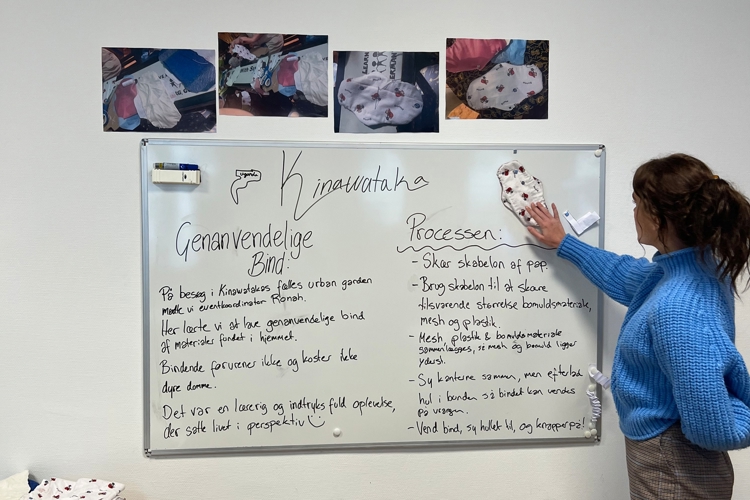 LEARN
uganda
Kinawataka
Genanvendelige
Bind:
På besøg i Kinawatakas fælles urban garden
mødte vi eventkoordinator Ronah.
Her lærte vi at lave genanvendelige bind
af materialer fundet i hjemmet.
Bindende farurener ikke og koster ikke
dyre domme.
Det var en lærerig og indtryksfuld oplevelse,
der satte livet i perspektiv
Processen:
- Skær skabelon af pap.
- Brug skabelon til at skære
tilsvarende størrelse bomuldsmateriale,
mesh og plastik.
- Mesh, plastik & bomuldsmateriale
sammenlægges, så mesh og bomuld ligger
yderst.
- Sy kanterne sammen, men efterlad
hul i bunden så bindet kan vendes
på vrangen.
- Vend bind, sy hullet til, og knapper på!